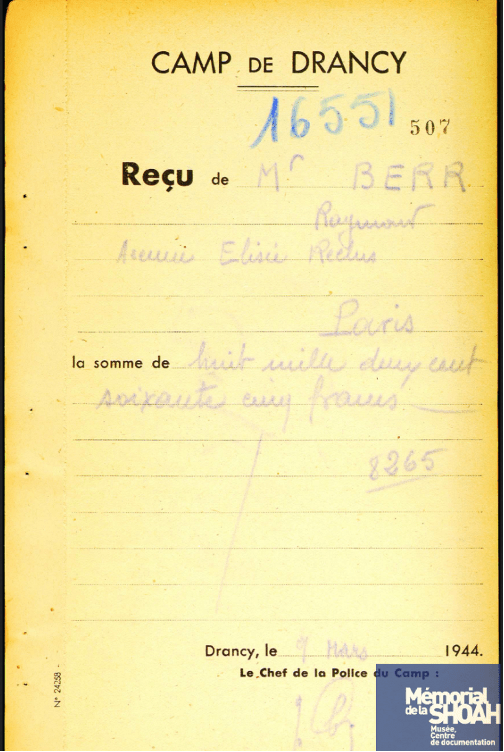 CAMP DE DRANCY
16551
507
Reçu de Mr BERR
Raymond
Avenue Elisée Reclus
Paris
la somme de huit mille deux cent
soixante cinq francs
8265
Drancy, le 9 Mars 1944.
Le Chef de la Police du Camp :
N° 24258 -
Mémorial
de la SHOAH
Musée,
Centre
de documentation